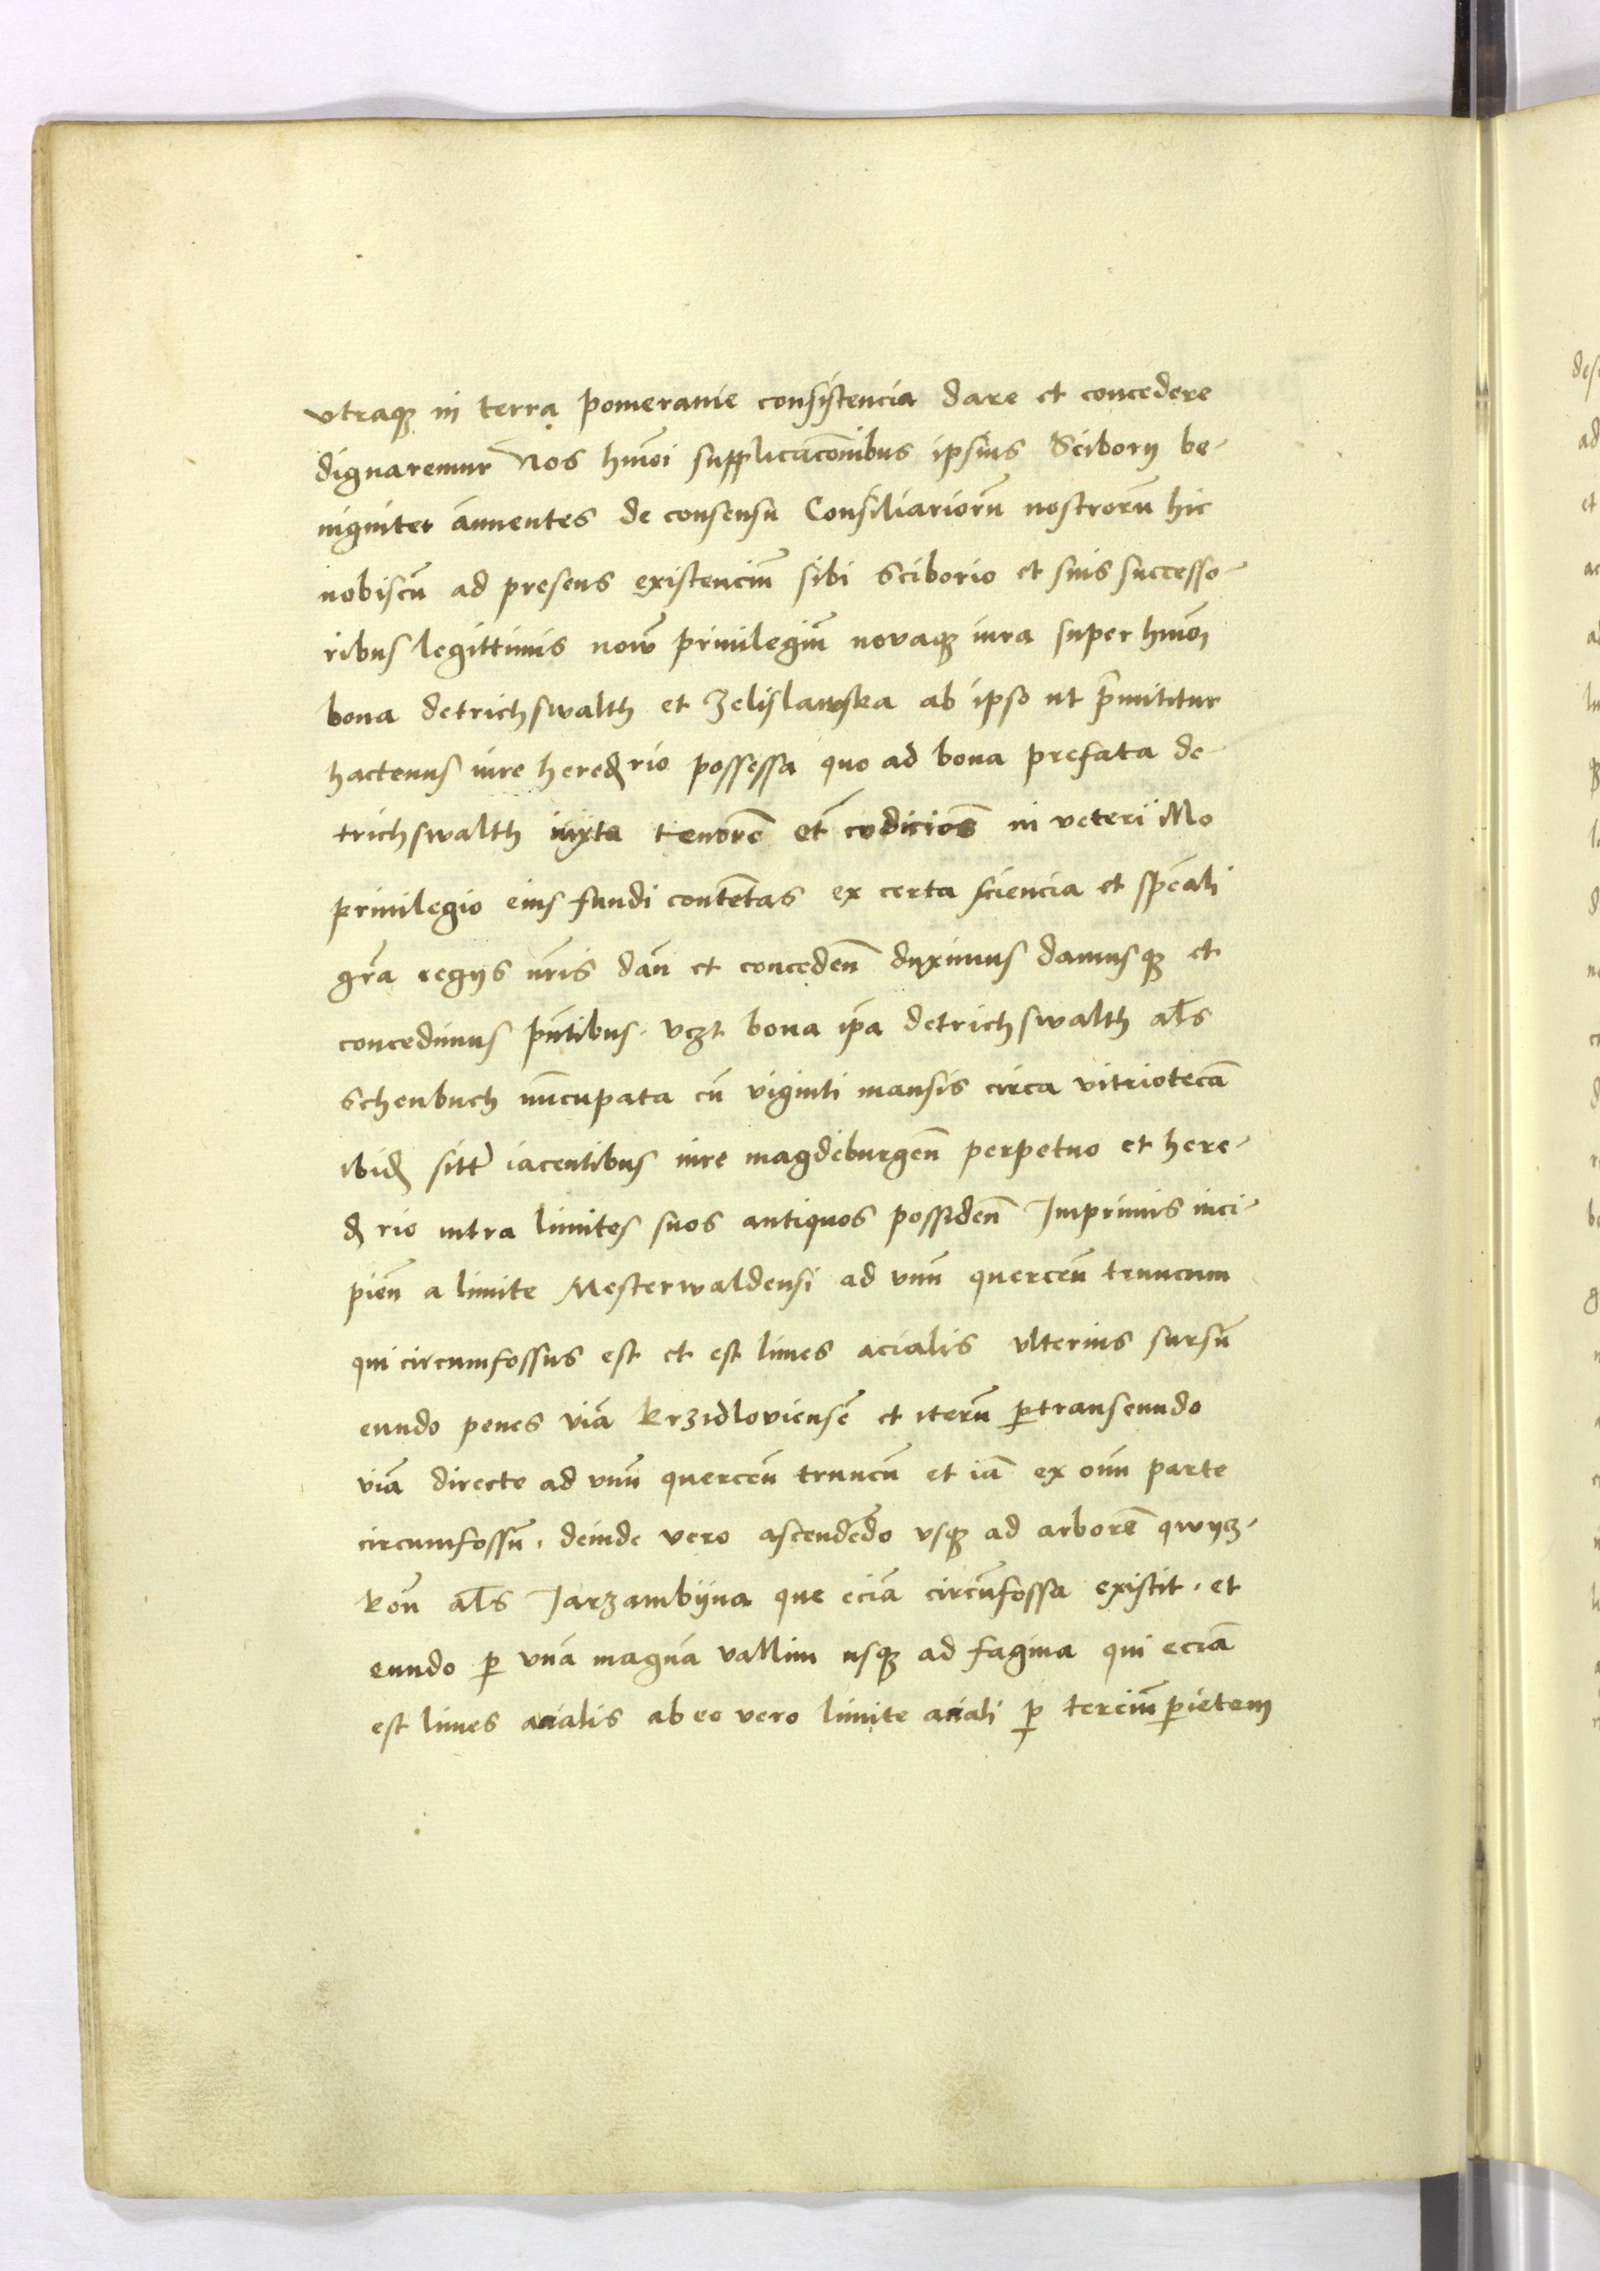 vtraqꝫ in terra pomeranie consistencia dare et concedere
dignaremur Nos hm̄oi supplicac̄onibus ipsius Sciborij be-
nigniter annentes de consensu Consiliariorū nostrorū hic
nobiscū ad presens existenciū sibi Sciborio et suis successo-
ribus legittimis novū priuilegiū novaqꝫ iura super hm̄oi
bona detrichswalth et Zelislawska ab ipso ut p̄mittitur
hactenus iure heredꝫrio possessa quo ad bona prefata de-
trichswalth iuxta tenorē et cōdicioēs in veteri illo
priuilegio eius fundi contētas ex certa sciencia et spēali
gr̄a regijs nr̄is dan̄ et conceden̄ duximus damusqꝫ et
concedimus pn̄tibus. vczt bona ip̄a detrichswalth al̄s
Schenbuch nūcupata cū viginti mansis circa vitriotecā
ibidꝫ sitr̄ iacentibus iure magdeburgen̄ perpetuo et here-
dꝫrio intra limites suos antiquos possiden̄ Imprimis inci-
pien̄ a limite Mesterwaldensi ad vnū querceū truncum
qui circumfossus est et est limes acialis vlterius sursū
eundo penes viā Krzidloviensē et iterū ꝑtranseundo
viā directe ad vnū querceū truncū et iā ex omī parte
circumfossū. deinde vero ascendēdo vsqꝫ ad arborē qwijz-
kon̄ al̄s Jarzambijna que eciā circūfossa existit. et
eundo ꝑ vnā magnā vallim usqꝫ ad fagina qui eciā
est limes acialis ab eo vero limite aciali ꝑ terciū parietem